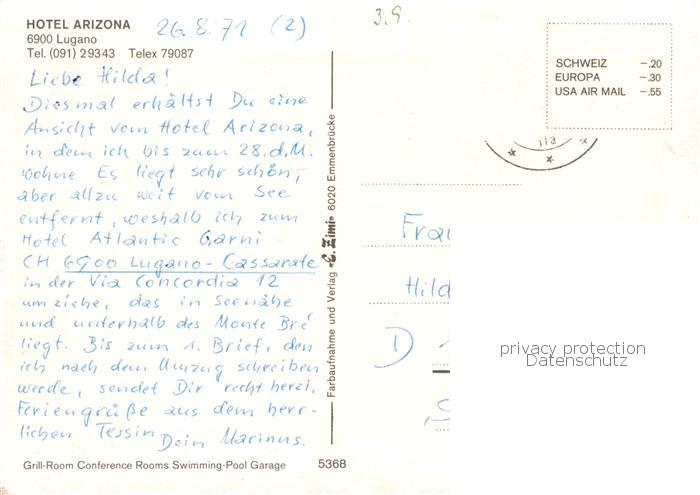 HOTEL ARIZONA
6900 Lugano
Tel. (091) 29343 Telex 79087
26.8.71 (2)
3.9.
Liebe Hilda!
Diesmal erhältst Du eine
Ansicht vom Hotel Arizona,
in dem ich bis zum 28.d.M.
wohne. Es liegt sehr schön,
aber allzu weit vom See
entfernt, weshalb ich zum
Hotel Atlantic Garni
CH 6900 Lugano-Cassarate
in der Via Concordia 12
umziehe, das in Seenähe
und unterhalb des Monte Bré
liegt. Bis zum 1. Brief, den
ich nach dem Umzug schreiben
werde, sendet Dir recht herzl.
Feriengrüße aus dem herr-
lichen Tessin Dein Marinus.
Grill-Room Conference Rooms Swimming-Pool Garage 5368
Farbaufnahme und Verlag «E. Zimi» 6020 Emmenbrücke
SCHWEIZ -.20
EUROPA -.30
USA AIR MAIL -.55
Frau
Hild
D
privacy protection
Datenschutz